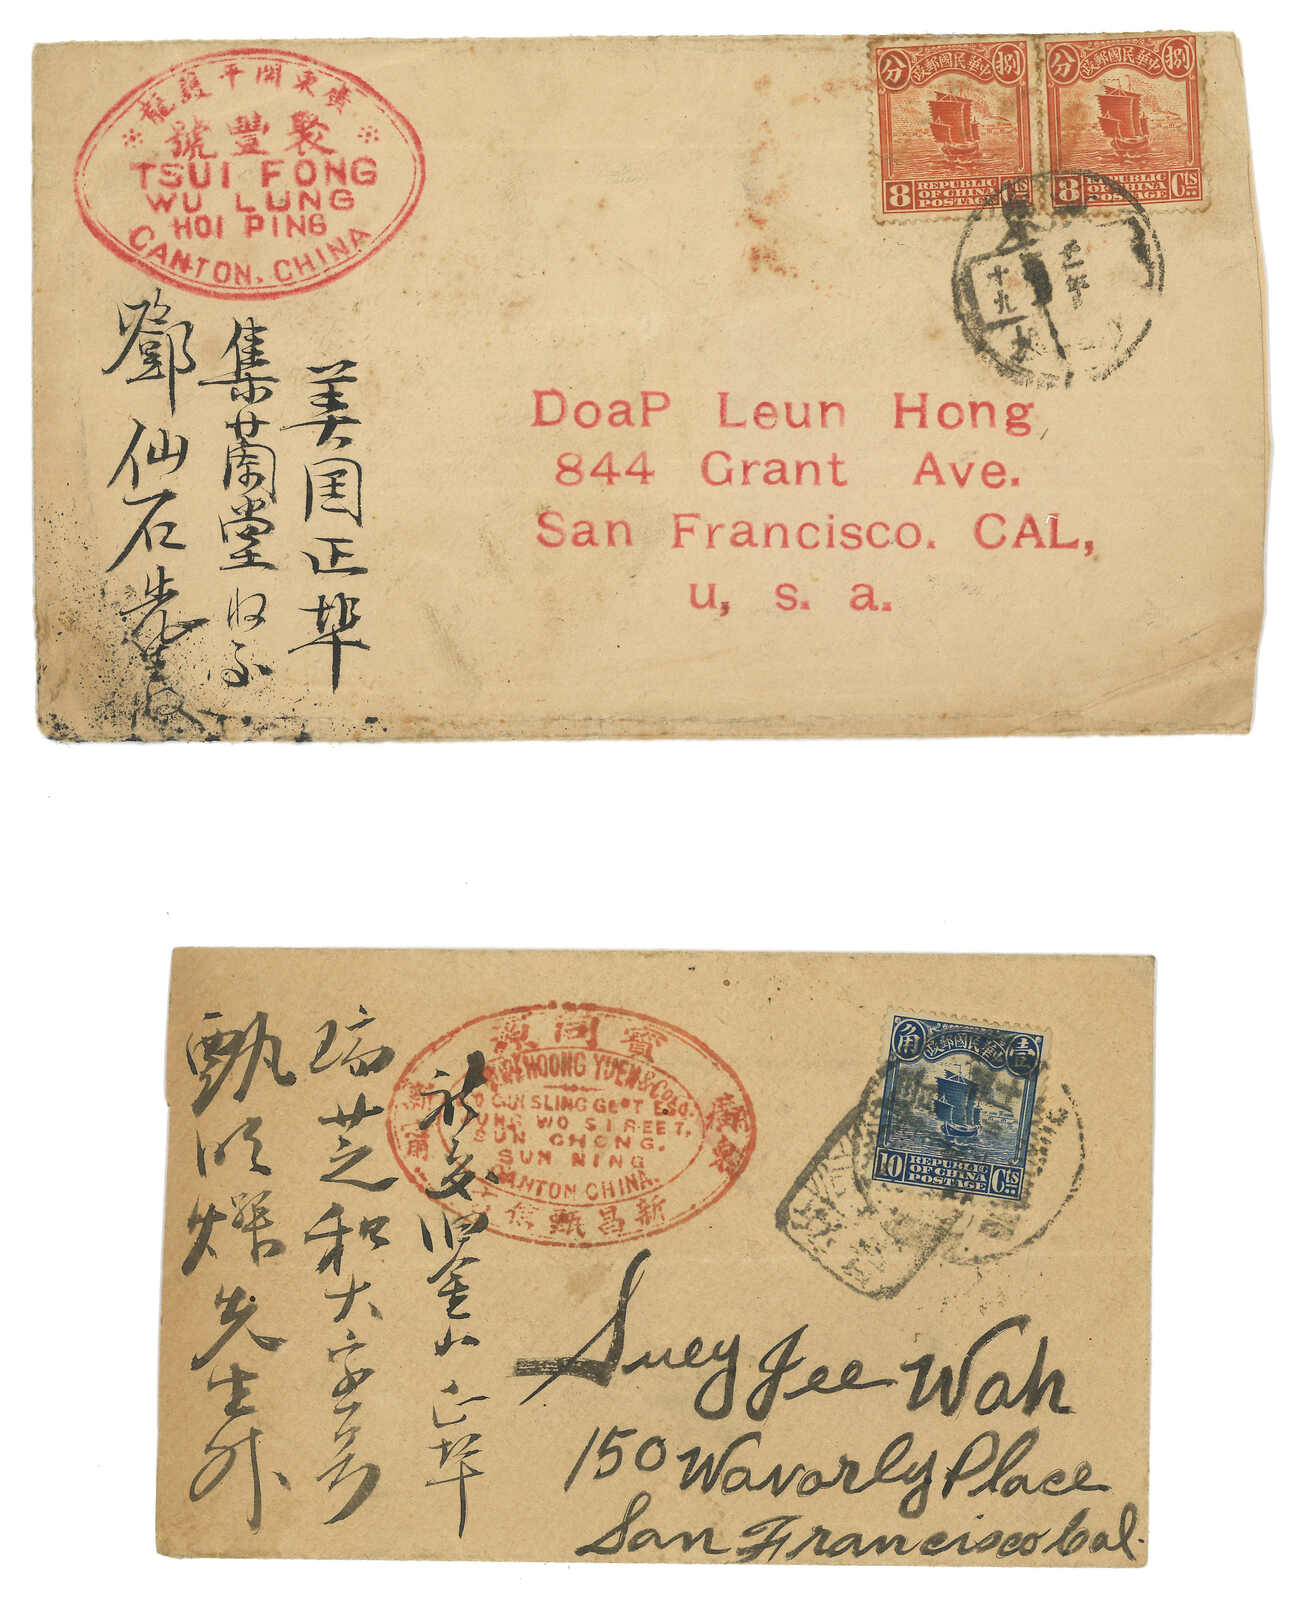 廣東開平護龍
聚豐號
TSUI FONG
WU LUNG
HOI PING
CANTON, CHINA
分 中華民國郵政 捌
8 REPUBLIC OF CHINA POSTAGE Cts
分 中華民國郵政 捌
8 REPUBLIC OF CHINA POSTAGE Cts
十九
DoaP Leun Hong
844 Grant Ave.
San Francisco. CAL,
u, s. a.
美国正埠
集蘭堂收交
鄧仙石先生
寶同源
HOONG YUEN & Co
SLING GEOT ESQ.
UNG WO STREET,
SUN CHONG.
SUN NING
CANTON CHINA.
新昌甄
角 中華民國郵政 壹
10 REPUBLIC OF CHINA POSTAGE Cts
旧金山正埠
瑞芝和大宝号
甄 燦先生
Suey Jee Wah
150 Wavorly Place
San Francisco Cal.